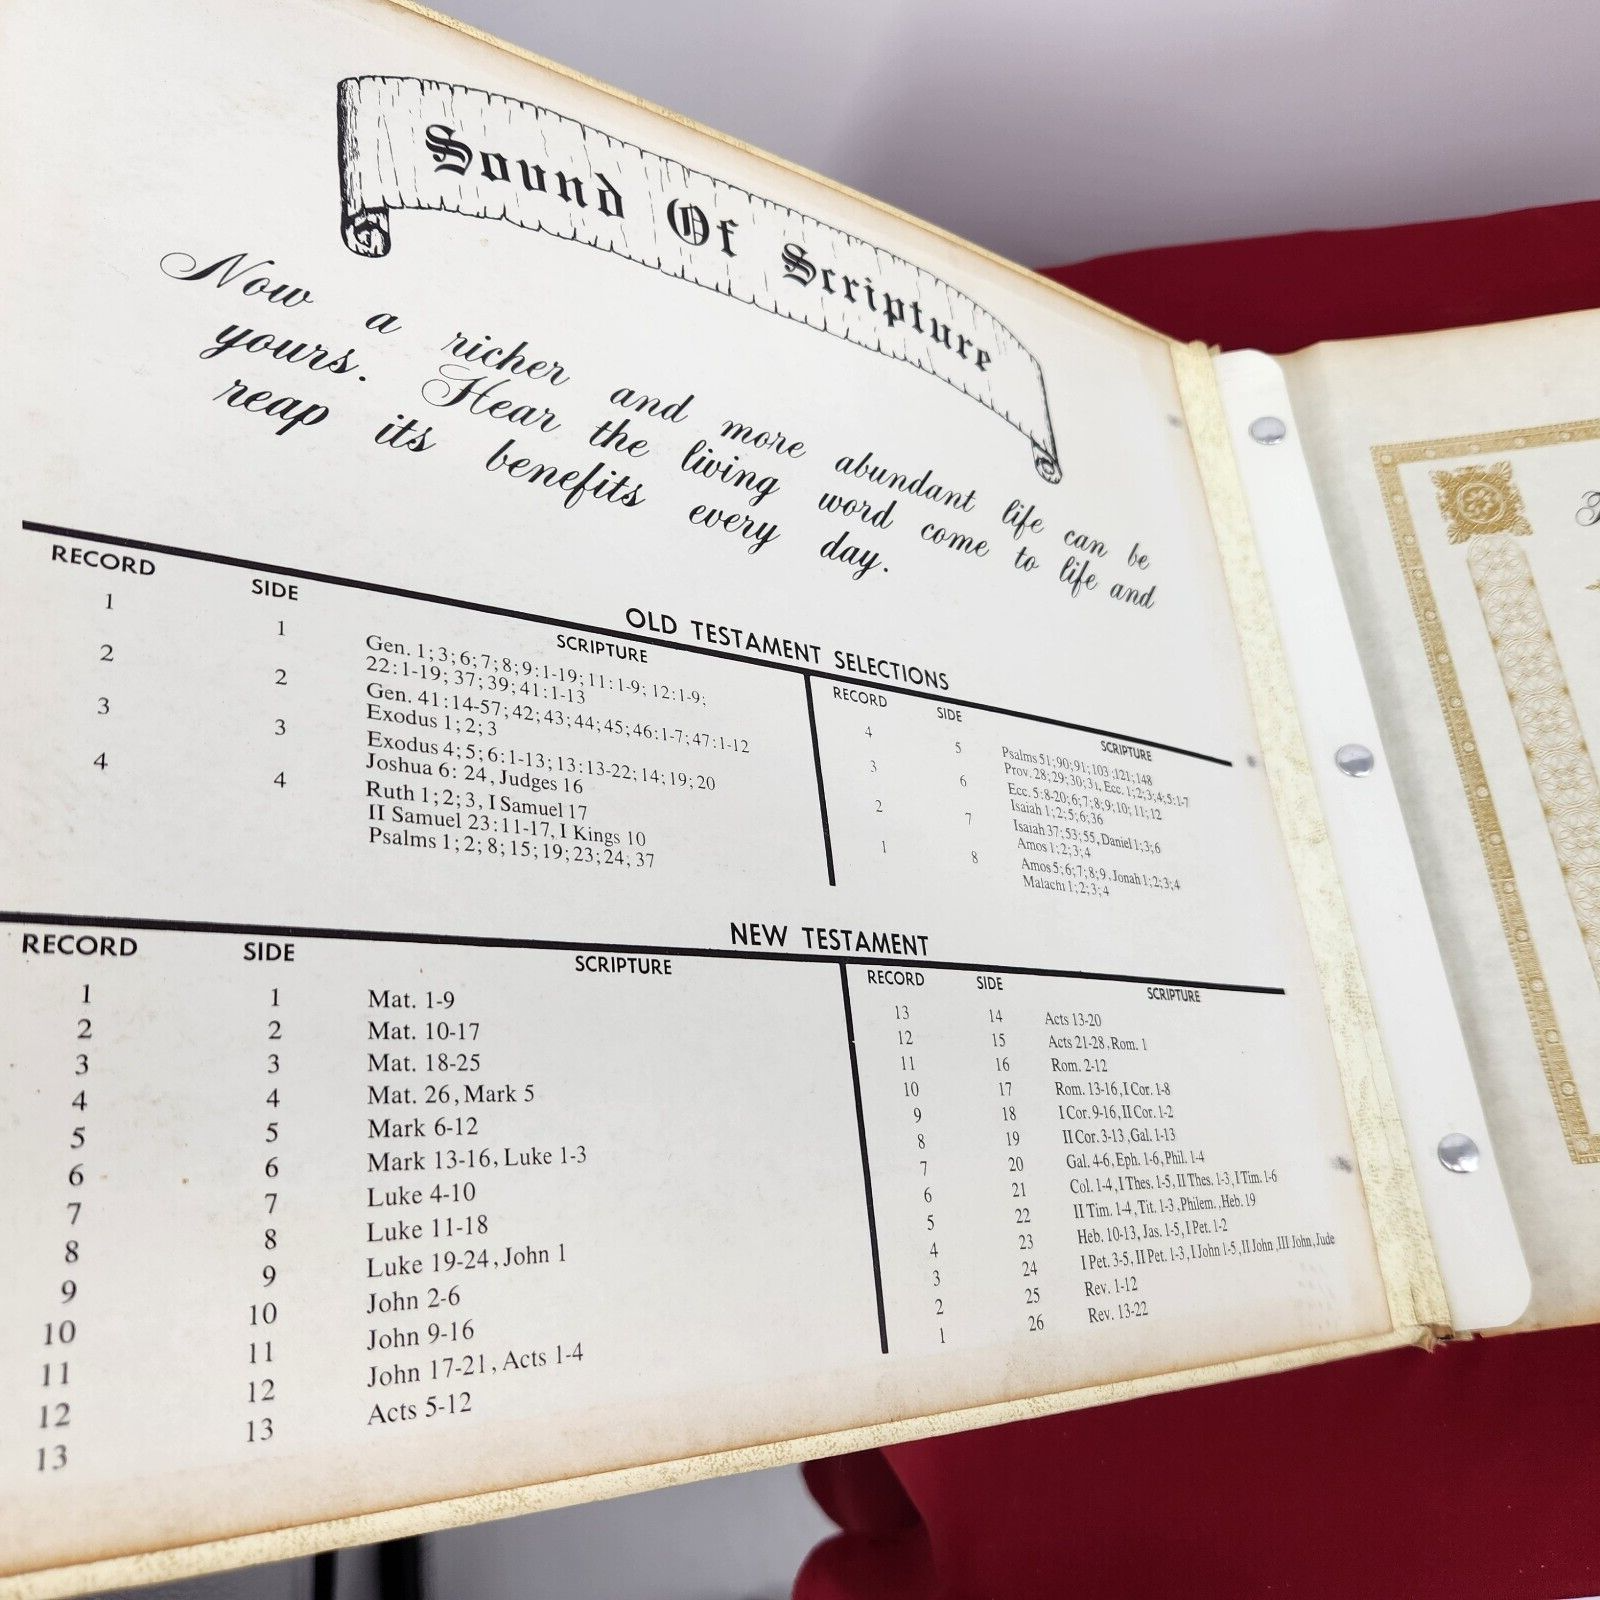 Sound Of Scripture
Now a richer and more abundant life can be
yours. Hear the living word come to life and
reap its benefits every day.
OLD TESTAMENT SELECTIONS
RECORD SIDE SCRIPTURE
1 1 Gen. 1; 3; 6; 7; 8; 9:1-19; 11:1-9; 12:1-9;
22:1-19; 37; 39; 41:1-13
2 2 Gen. 41:14-57; 42; 43; 44; 45; 46:1-7; 47:1-12
Exodus 1; 2; 3
3 3 Exodus 4; 5; 6:1-13; 13:13-22; 14; 19; 20
Joshua 6: 24, Judges 16
4 4 Ruth 1; 2; 3, I Samuel 17
II Samuel 23:11-17, I Kings 10
Psalms 1; 2; 8; 15; 19; 23; 24; 37
RECORD SIDE SCRIPTURE
4 5 Psalms 51; 90; 91; 103 ;121; 148
Prov. 28; 29; 30; 31, Ecc. 1; 2; 3; 4; 5:1-7
3 6 Ecc. 5:8-20; 6; 7; 8; 9; 10; 11; 12
Isaiah 1; 2; 5; 6; 36
2 7 Isaiah 37; 53; 55, Daniel 1; 3; 6
Amos 1; 2; 3; 4
1 8 Amos 5; 6; 7; 8; 9, Jonah 1; 2; 3; 4
Malachi 1; 2; 3; 4
NEW TESTAMENT
RECORD SIDE SCRIPTURE
1 1 Mat. 1-9
2 2 Mat. 10-17
3 3 Mat. 18-25
4 4 Mat. 26, Mark 5
5 5 Mark 6-12
6 6 Mark 13-16, Luke 1-3
7 7 Luke 4-10
8 8 Luke 11-18
9 9 Luke 19-24, John 1
10 10 John 2-6
11 11 John 9-16
12 12 John 17-21, Acts 1-4
13 13 Acts 5-12
RECORD SIDE SCRIPTURE
13 14 Acts 13-20
12 15 Acts 21-28, Rom. 1
11 16 Rom. 2-12
10 17 Rom. 13-16, I Cor. 1-8
9 18 I Cor. 9-16, II Cor. 1-2
8 19 II Cor. 3-13, Gal. 1-13
7 20 Gal. 4-6, Eph. 1-6, Phil. 1-4
6 21 Col. 1-4, I Thes. 1-5, II Thes. 1-3, I Tim. 1-6
5 22 II Tim. 1-4, Tit. 1-3, Philem., Heb. 19
4 23 Heb. 10-13, Jas. 1-5, I Pet. 1-2
3 24 I Pet. 3-5, II Pet. 1-3, I John 1-5, II John, III John, Jude
2 25 Rev. 1-12
1 26 Rev. 13-22